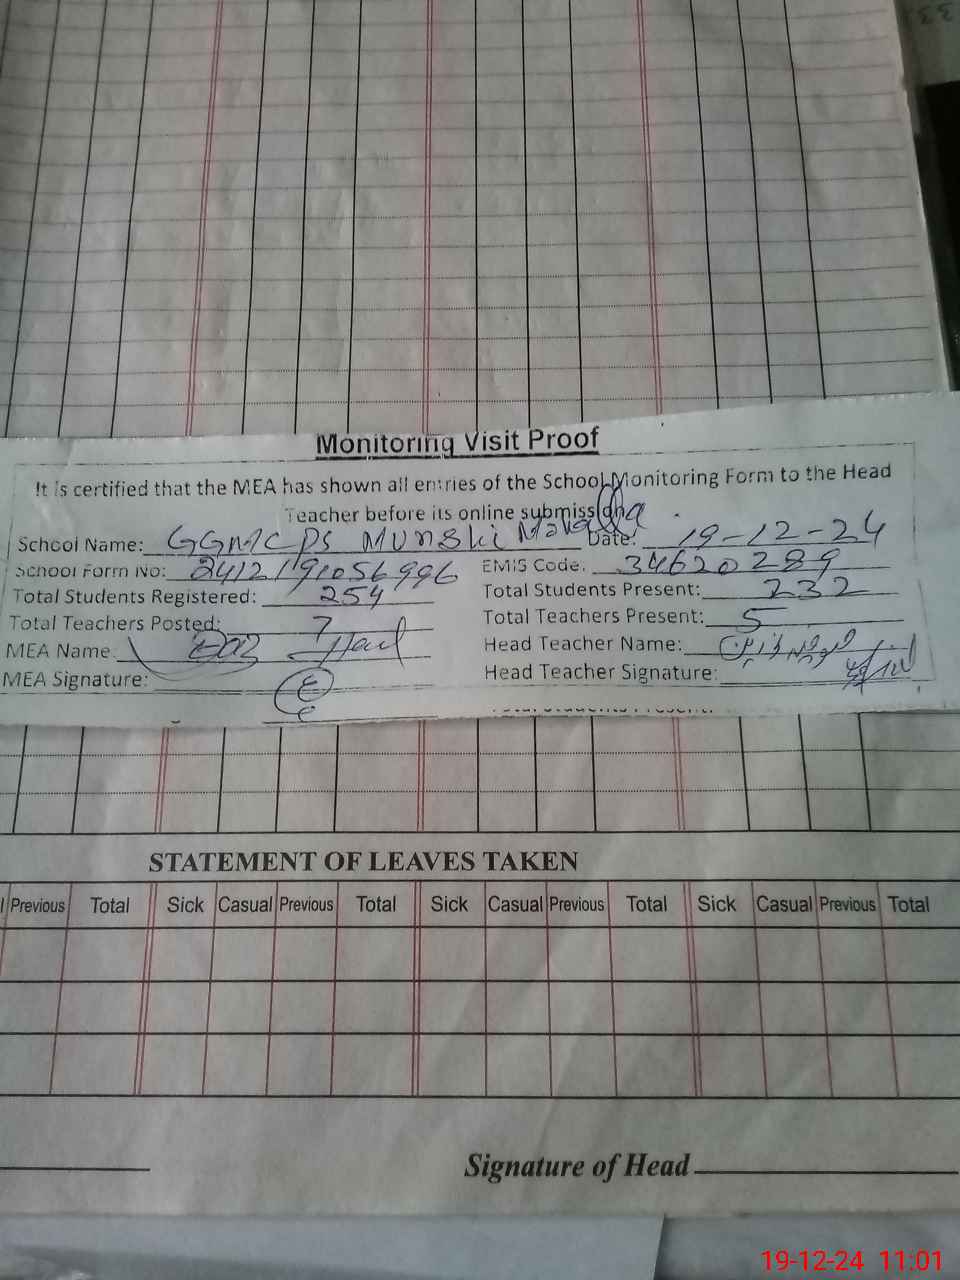 Monitoring Visit Proof
It is certified that the MEA has shown all entries of the School Monitoring Form to the Head
Teacher before its online submission.
School Name: GGMCPS Munshi Mohalla Date: 19-12-24
School Form No: 2412191056996 EMIS Code: 34620289
Total Students Registered: 254 Total Students Present: 232
Total Teachers Posted: 7 Total Teachers Present: 5
MEA Name: Head Teacher Name:
MEA Signature: Head Teacher Signature:
Total Students Present:
STATEMENT OF LEAVES TAKEN
l Previous Total Sick Casual Previous Total Sick Casual Previous Total Sick Casual Previous Total
Signature of Head
19-12-24 11:01